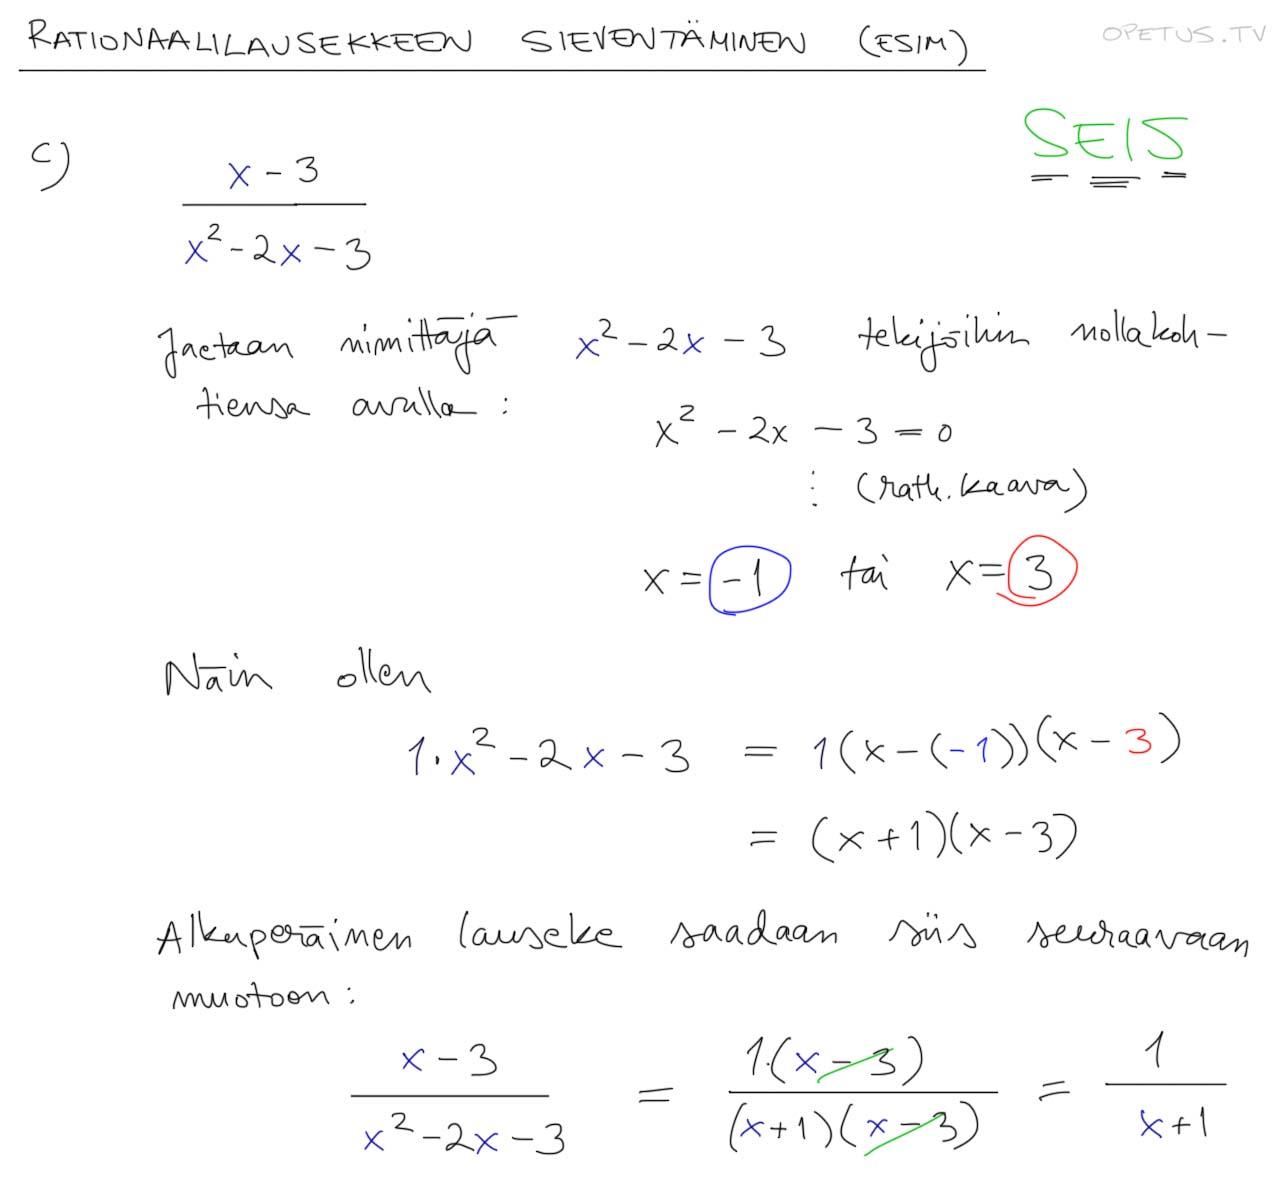 RATIONAALILAUSEKKEEN SIEVENTÄMINEN (ESIM)
OPETUS.TV
SEIS
c)
x - 3
x² - 2x - 3
Jaetaan nimittäjä x² - 2x - 3 tekijöihin nollakoh-
tiensa avulla :
x² - 2x - 3 = 0
⋮ (ratk. kaava)
x = -1 tai x = 3
Näin ollen
1·x² - 2x - 3 = 1(x - (-1))(x - 3)
= (x + 1)(x - 3)
Alkuperäinen lauseke saadaan siis seuraavaan
muotoon :
x - 3 / x² - 2x - 3 = 1·(x - 3) / (x+1)(x - 3) = 1 / x+1